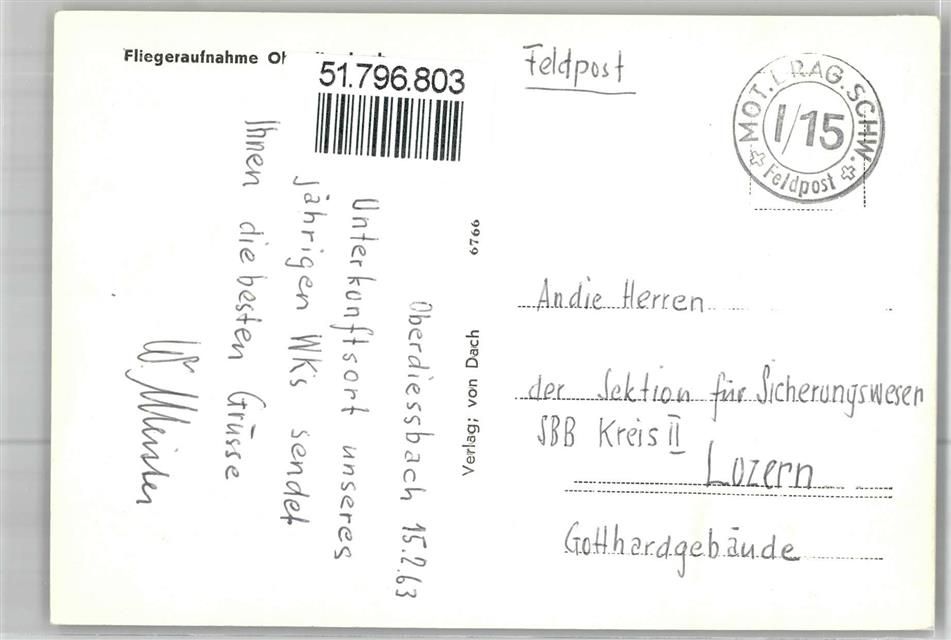 Fliegeraufnahme
51.796.803
Oberdiessbach 15.2.63
Unterkunftsort unseres
jährigen WKs sendet
Ihnen die besten Grüsse
W. Meister
Verlag; von Dach 6766
Feldpost
MOT. DRAG. SCHW.
I/15
Feldpost
An die Herren
der Sektion für Sicherungswesen
SBB Kreis II
Luzern
Gotthardgebäude